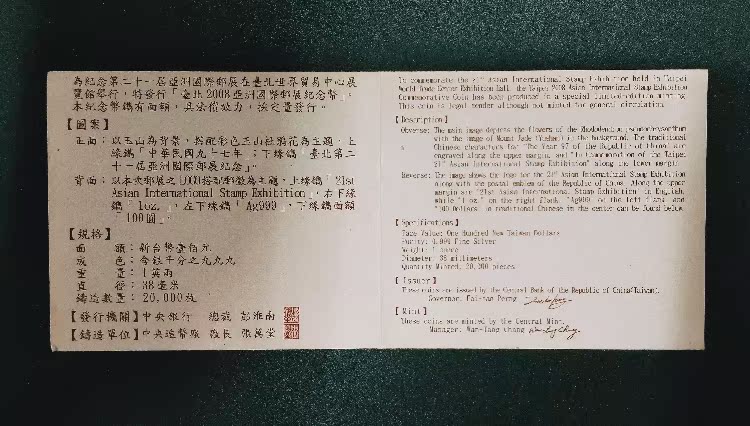 為紀念第二十一屆亞洲國際郵展在臺北世界貿易中心展
覽館舉行，特發行「臺北2008亞洲國際郵展紀念幣」。
本紀念幣鑄有面額，具法償效力，採定量發行。
【圖案】
正面：以玉山為背景，搭配彩色玉山杜鵑花為主題，上
緣鐫「中華民國九十七年」；下緣鐫「臺北第二
十一屆亞洲國際郵展紀念」。
背面：以本次郵展之LOGO搭配郵徽為主題，上緣鐫「21st
Asian International Stamp Exhibition」，右下緣
鐫「1oz.」，左下緣鐫「Ag999」，下緣鐫面額
「100圓」。
【規格】
面額：新台幣壹佰元
成色：含銀千分之九九九
重量：1英兩
直徑：38毫米
鑄造數量：20,000枚
【發行機關】中央銀行 總裁 彭淮南
【鑄造單位】中央造幣廠 廠長 張萬堂
To commemorate the 21st Asian International Stamp Exhibition held in Taipei
World Trade Center Exhibition Hall, the Taipei 2008 Asian International Stamp Exhibition
Commemorative Coin has been produced in a special limited-edition minting.
This coin is legal tender although not minted for general circulation.
【Description】
Obverse: The main image depicts the flowers of the Rhododendron pseudochrysanthum
with the image of Mount Jade (Yushan) in the background. The traditional
Chinese characters for "The Year 97 of the Republic of China" are
engraved along the upper margin, and "In Commemoration of the Taipei
21st Asian International Stamp Exhibition" along the lower margin.
Reverse: The image shows the logo for the 21st Asian International Stamp Exhibition
along with the postal emblem of the Republic of China. Along the upper
margin are "21st Asian International Stamp Exhibition" in English,
while "1 oz." on the right flank, "Ag999" on the left flank, and
"100 Dollars" in traditional Chinese in the center can be found below.
【Specifications】
Face Value: One Hundred New Taiwan Dollars
Purity: 0.999 Fine Silver
Weight: 1 ounce
Diameter: 38 millimeters
Quantity Minted: 20,000 pieces
【Issuer】
These coins are issued by the Central Bank of the Republic of China(Taiwan).
Governor, Fai-nan Perng
【Mint】
These coins are minted by the Central Mint.
Manager, Wan-Tang Chang